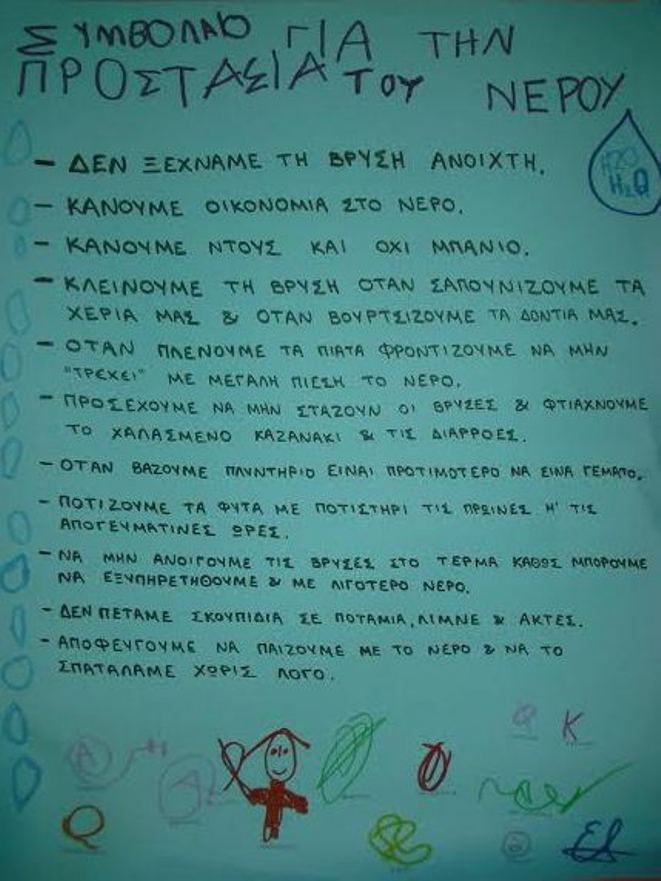 ΣΥΜΒΟΛΑΙΟ ΓΙΑ ΤΗΝ
ΠΡΟΣΤΑΣΙΑ ΤΟΥ ΝΕΡΟΥ
H2O
H2O
- ΔΕΝ ΞΕΧΝΑΜΕ ΤΗ ΒΡΥΣΗ ΑΝΟΙΧΤΗ.
- ΚΑΝΟΥΜΕ ΟΙΚΟΝΟΜΙΑ ΣΤΟ ΝΕΡΟ.
- ΚΑΝΟΥΜΕ ΝΤΟΥΣ ΚΑΙ ΟΧΙ ΜΠΑΝΙΟ.
- ΚΛΕΙΝΟΥΜΕ ΤΗ ΒΡΥΣΗ ΟΤΑΝ ΣΑΠΟΥΝΙΖΟΥΜΕ ΤΑ
ΧΕΡΙΑ ΜΑΣ & ΟΤΑΝ ΒΟΥΡΤΣΙΖΟΥΜΕ ΤΑ ΔΟΝΤΙΑ ΜΑΣ.
- ΟΤΑΝ ΠΛΕΝΟΥΜΕ ΤΑ ΠΙΑΤΑ ΦΡΟΝΤΙΖΟΥΜΕ ΝΑ ΜΗΝ
"ΤΡΕΧΕΙ" ΜΕ ΜΕΓΑΛΗ ΠΙΕΣΗ ΤΟ ΝΕΡΟ.
- ΠΡΟΣΕΧΟΥΜΕ ΝΑ ΜΗΝ ΣΤΑΖΟΥΝ ΟΙ ΒΡΥΣΕΣ & ΦΤΙΑΧΝΟΥΜΕ
ΤΟ ΧΑΛΑΣΜΕΝΟ ΚΑΖΑΝΑΚΙ & ΤΙΣ ΔΙΑΡΡΟΕΣ.
- ΟΤΑΝ ΒΑΖΟΥΜΕ ΠΛΥΝΤΗΡΙΟ ΕΙΝΑΙ ΠΡΟΤΙΜΟΤΕΡΟ ΝΑ ΕΙΝΑ ΓΕΜΑΤΟ.
- ΠΟΤΙΖΟΥΜΕ ΤΑ ΦΥΤΑ ΜΕ ΠΟΤΙΣΤΗΡΙ ΤΙΣ ΠΡΩΙΝΕΣ Η' ΤΙΣ
ΑΠΟΓΕΥΜΑΤΙΝΕΣ ΩΡΕΣ.
- ΝΑ ΜΗΝ ΑΝΟΙΓΟΥΜΕ ΤΙΣ ΒΡΥΣΕΣ ΣΤΟ ΤΕΡΜΑ ΚΑΘΩΣ ΜΠΟΡΟΥΜΕ
ΝΑ ΕΞΥΠΗΡΕΤΗΘΟΥΜΕ & ΜΕ ΛΙΓΟΤΕΡΟ ΝΕΡΟ.
- ΔΕΝ ΠΕΤΑΜΕ ΣΚΟΥΠΙΔΙΑ ΣΕ ΠΟΤΑΜΙΑ, ΛΙΜΝΕ & ΑΚΤΕΣ.
- ΑΠΟΦΕΥΓΟΥΜΕ ΝΑ ΠΑΙΖΟΥΜΕ ΜΕ ΤΟ ΝΕΡΟ & ΝΑ ΤΟ
ΣΠΑΤΑΛΑΜΕ ΧΩΡΙΣ ΛΟΓΟ.
Κ